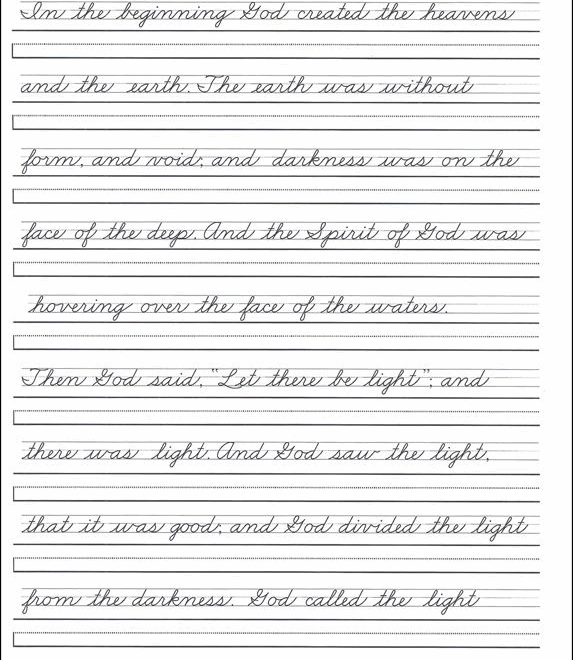 In the beginning God created the heavens
and the earth. The earth was without
form, and void; and darkness was on the
face of the deep. And the Spirit of God was
hovering over the face of the waters.
Then God said, “Let there be light”; and
there was light. And God saw the light,
that it was good; and God divided the light
from the darkness. God called the light